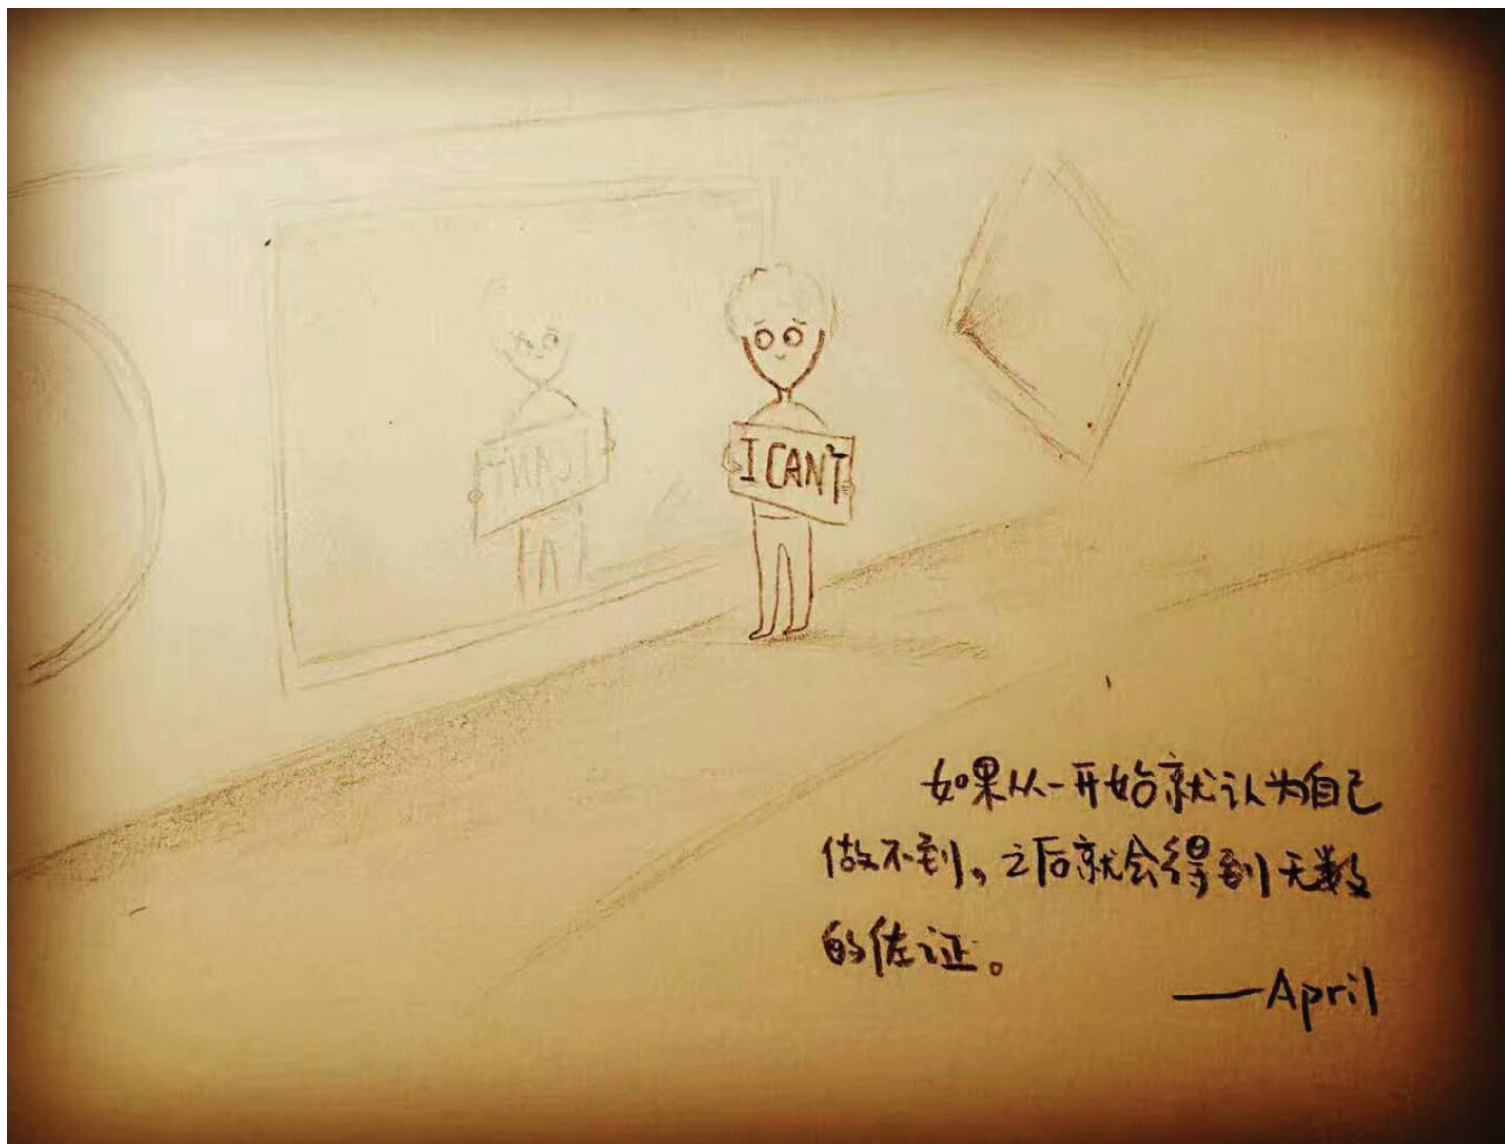 I CAN'T
如果从一开始就认为自己
做不到，之后就会得到无数
的佐证。
——April